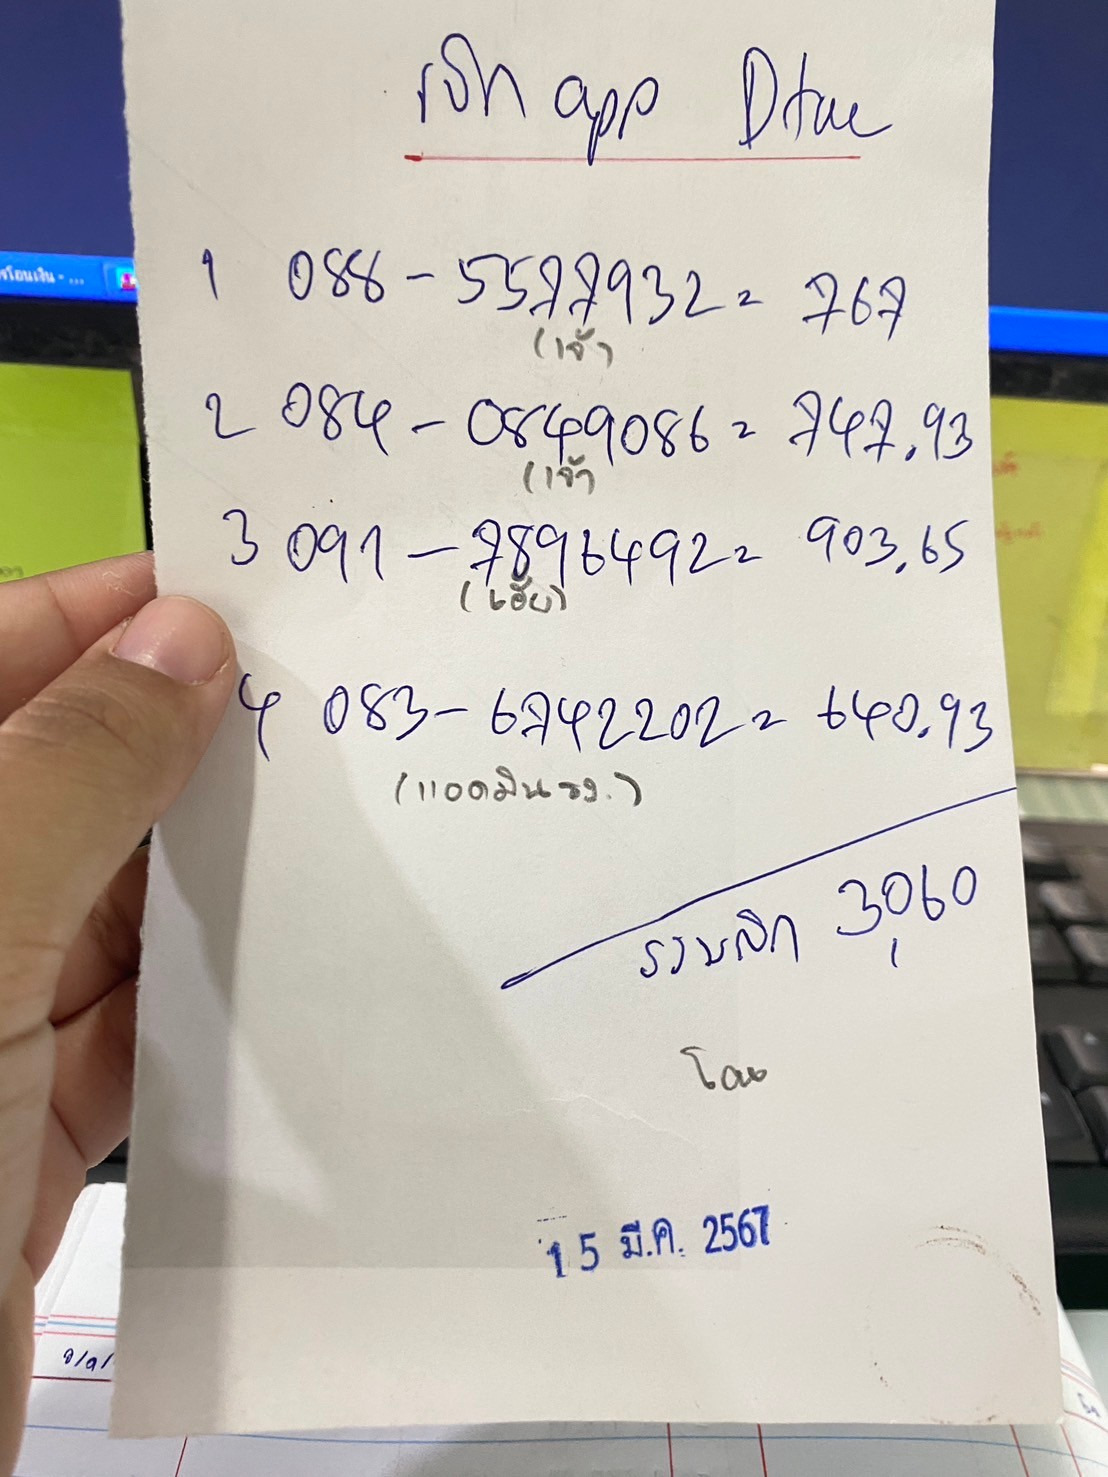 เบิก app Dtac
1 088-5577932 = 767
(เจ้า
2 084-0849086 = 747.93
(เจ้า
3 091-7896492 = 903.65
(เฮีย)
4 083-6742202 = 640.93
(แอดมิน รง.)
รวมเบิก 3,060
โอน
15 มี.ค. 2567